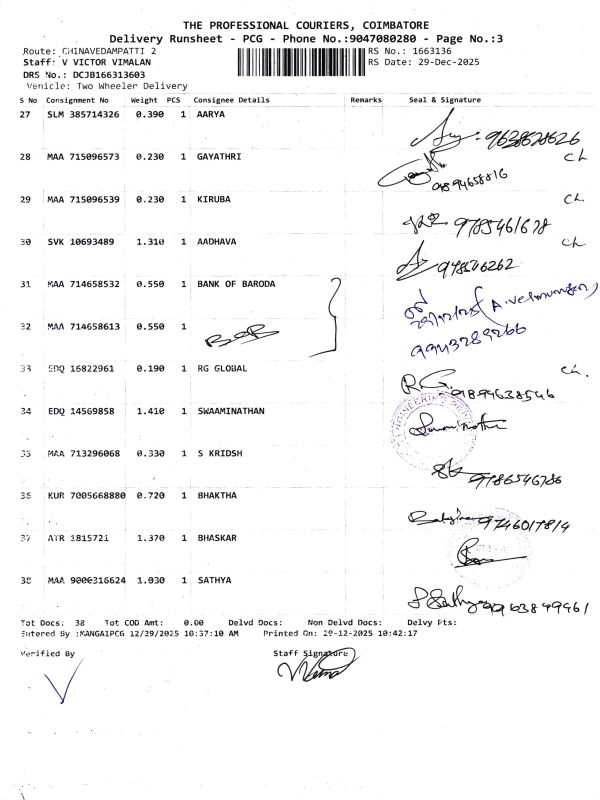 THE PROFESSIONAL COURIERS, COIMBATORE
Delivery Runsheet - PCG - Phone No.:9047080280 - Page No.:3
Route: CHINAVEDAMPATTI 2 RS No.: 1663136
Staff: V VICTOR VIMALAN RS Date: 29-Dec-2025
DRS No.: DCJB166313603
Vehicle: Two Wheeler Delivery
S No Consignment No Weight PCS Consignee Details Remarks Seal & Signature
27 SLM 385714326 0.390 1 AARYA
9638628626
28 MAA 715096573 0.230 1 GAYATHRI CL
9894658816
29 MAA 715096539 0.230 1 KIRUBA CL
9785461678
30 SVK 10693489 1.310 1 AADHAVA CL
978546262
31 MAA 714658532 0.550 1 BANK OF BARODA
29/12/25
32 MAA 714658613 0.550 1
BOB 9943289266
33 EDQ 16822961 0.190 1 RG GLOBAL CL.
R.G. 9894638546
34 EDQ 14569858 1.410 1 SWAAMINATHAN
35 MAA 713296068 0.330 1 S KRIDSH
9786546786
36 KUR 7005668880 0.720 1 BHAKTHA
9746017814
37 ATR 1815721 1.370 1 BHASKAR
38 MAA 9000316624 1.030 1 SATHYA
Tot Docs: 38 Tot COD Amt: 0.00 Delvd Docs: Non Delvd Docs: Delvy Pts:
Entered By :MANGAIPCG 12/29/2025 10:37:10 AM Printed On: 29-12-2025 10:42:17
Verified By Staff Signature